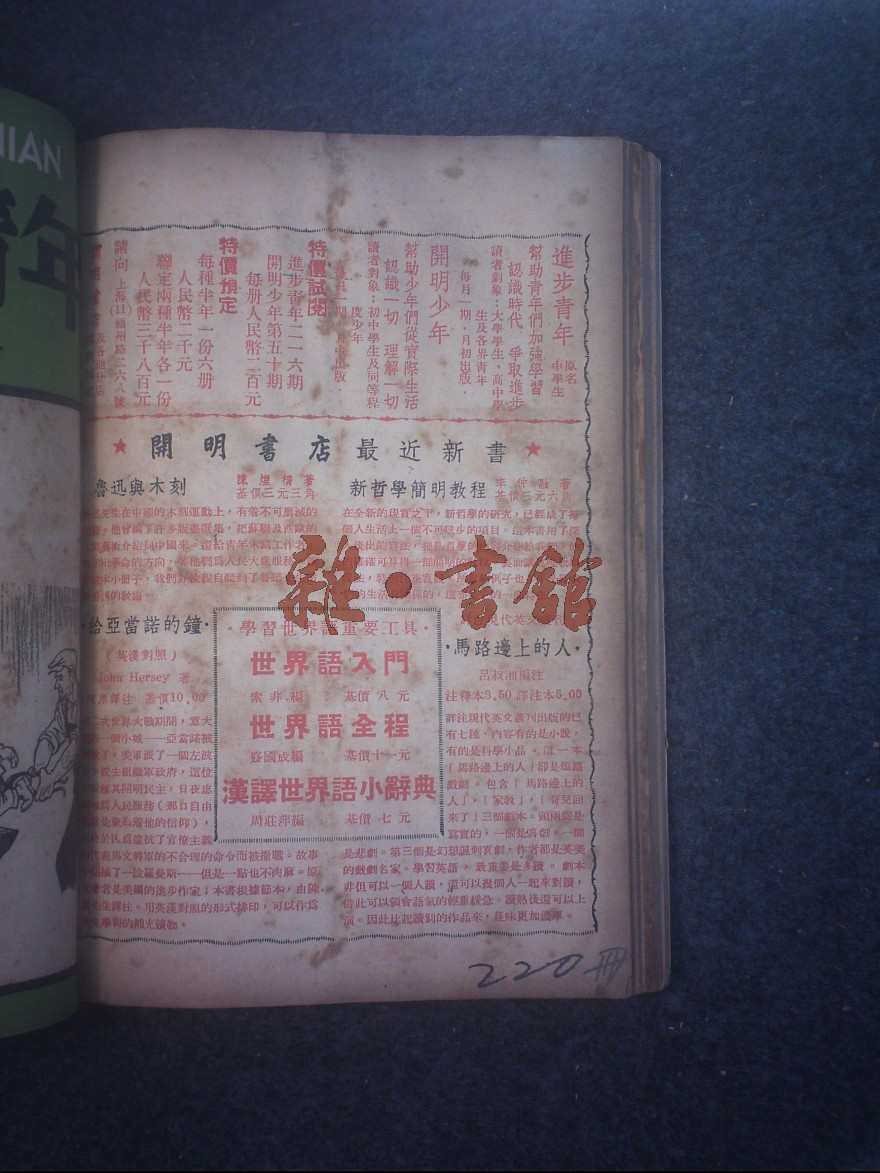 NIAN
青年
進步青年 原名中學生
幫助青年們加強學習
認識時代 爭取進步
讀者對象：大學學生、高中學
生及各界青年
每月一期，月初出版，
開明少年
幫助少年們從實際生活
認識一切 理解一切
讀者對象：初中學生及同等程
度少年
每月一期，月中出版，
特價試閱
進步青年二一六期
開明少年第五十期
每册人民幣二百元
特價預定
每種半年一份六册
人民幣二千元
聯定兩種半年各一份
人民幣三千八百元
請向 上海(11)福州路二六八號
開明書店
★ 開明書店最近新書 ★
新哲學簡明教程
基價三元六角
在全新的現實之下，新哲學的研究，已經成了每
個人生活上一個不可缺少的項目。這本書用了深
魯迅與木刻
陳煙橋著
基價三元三角
先生在中國的木刻運動上，有着不可磨滅的
他曾編了許多版畫選集，把蘇聯及西歐的
介紹到中國來。還給青年木刻工作者
革命的方向，要他們爲人民大衆服務
雜·書館
·馬路邊上的人·
呂叔湘編注
注釋本3.50 譯注本5.00
詳注現代英文叢刊出版的已
有七種，內容有的是小說，
有的是科學小品。這一本
「馬路邊上的人」卻是短篇
戲劇。包含「馬路邊上的
人」，「家敎」，「哥兒回
來了」三個劇本。頭兩個是
寫實的，一個是喜劇，一個
是悲劇。第三個是幻想諷刺喜劇，作者都是英美
的戲劇名家。學習英語，最重要是多讀。劇本
非但可以一個人讀，還可以幾個人一起來對讀，
借此可以領會語氣的輕重緩急。讀熟後還可以上
演。因此比起讀別的作品來，意味更加濃厚。
·學習世界語重要工具·
世界語入門
索非編 基價八元
世界語全程
盛國成編 基價十一元
漢譯世界語小辭典
周莊萍編 基價七元
·給亞當諾的鐘·
（英漢對照）
John Hersey 著
陳原譯注 基價10.00
二次世界大戰期間，意大
的一個小城——亞當諾被
了，美軍派了一個左波
少校去組織軍政府，這位
極其開明民主，日夜忠
爲人民服務（那口自由
是象徵着他的信仰），
於民爲違抗了官僚主義
代表馬文將軍的不合理的命令而被撤職。故事
插了一段羅曼斯——但是一點也不肉麻。原
著者是美國的進步作家；本書根據節本，由陳
先生譯注。用英漢對照的形式排印，可以作爲
文學科的補充讀物。
220冊